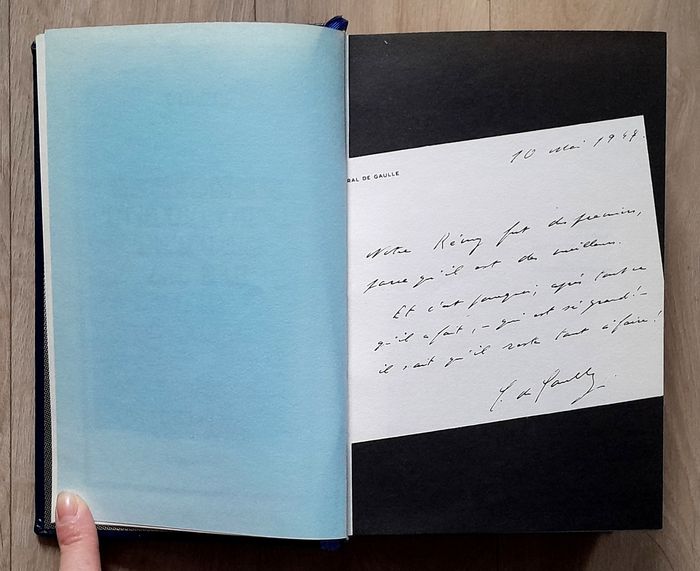 10 Mai 1948.
RAL DE GAULLE
Notre Rémy fut des premiers,
parce qu'il est des meilleurs.
Et c'est pourquoi, après tout ce
qu'il a fait, – qui est si grand! –
il sait qu'il reste tant à faire!
C. de Gaulle